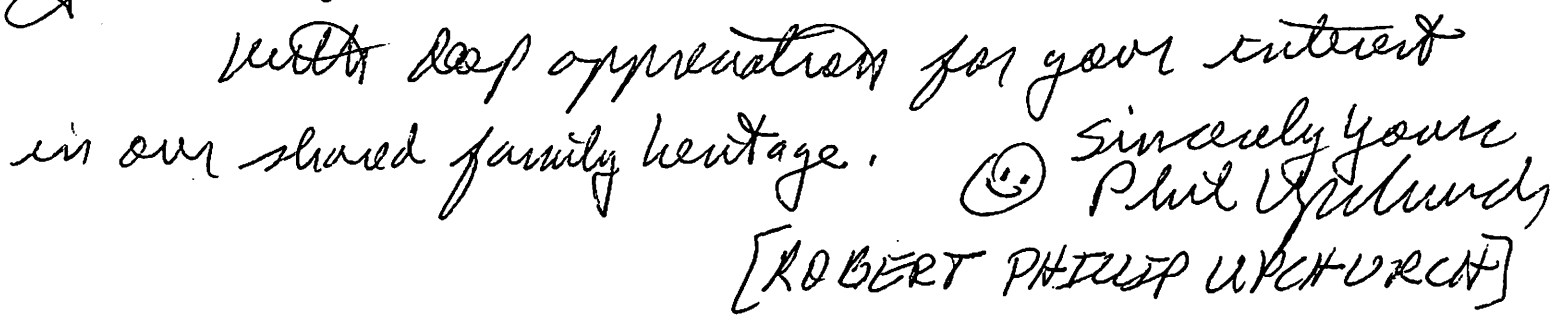 With deep appreciation for your interest
in our shared family heritage.
Sincerely yours
Phil Upchurch
[ROBERT PHILLIP UPCHURCH]